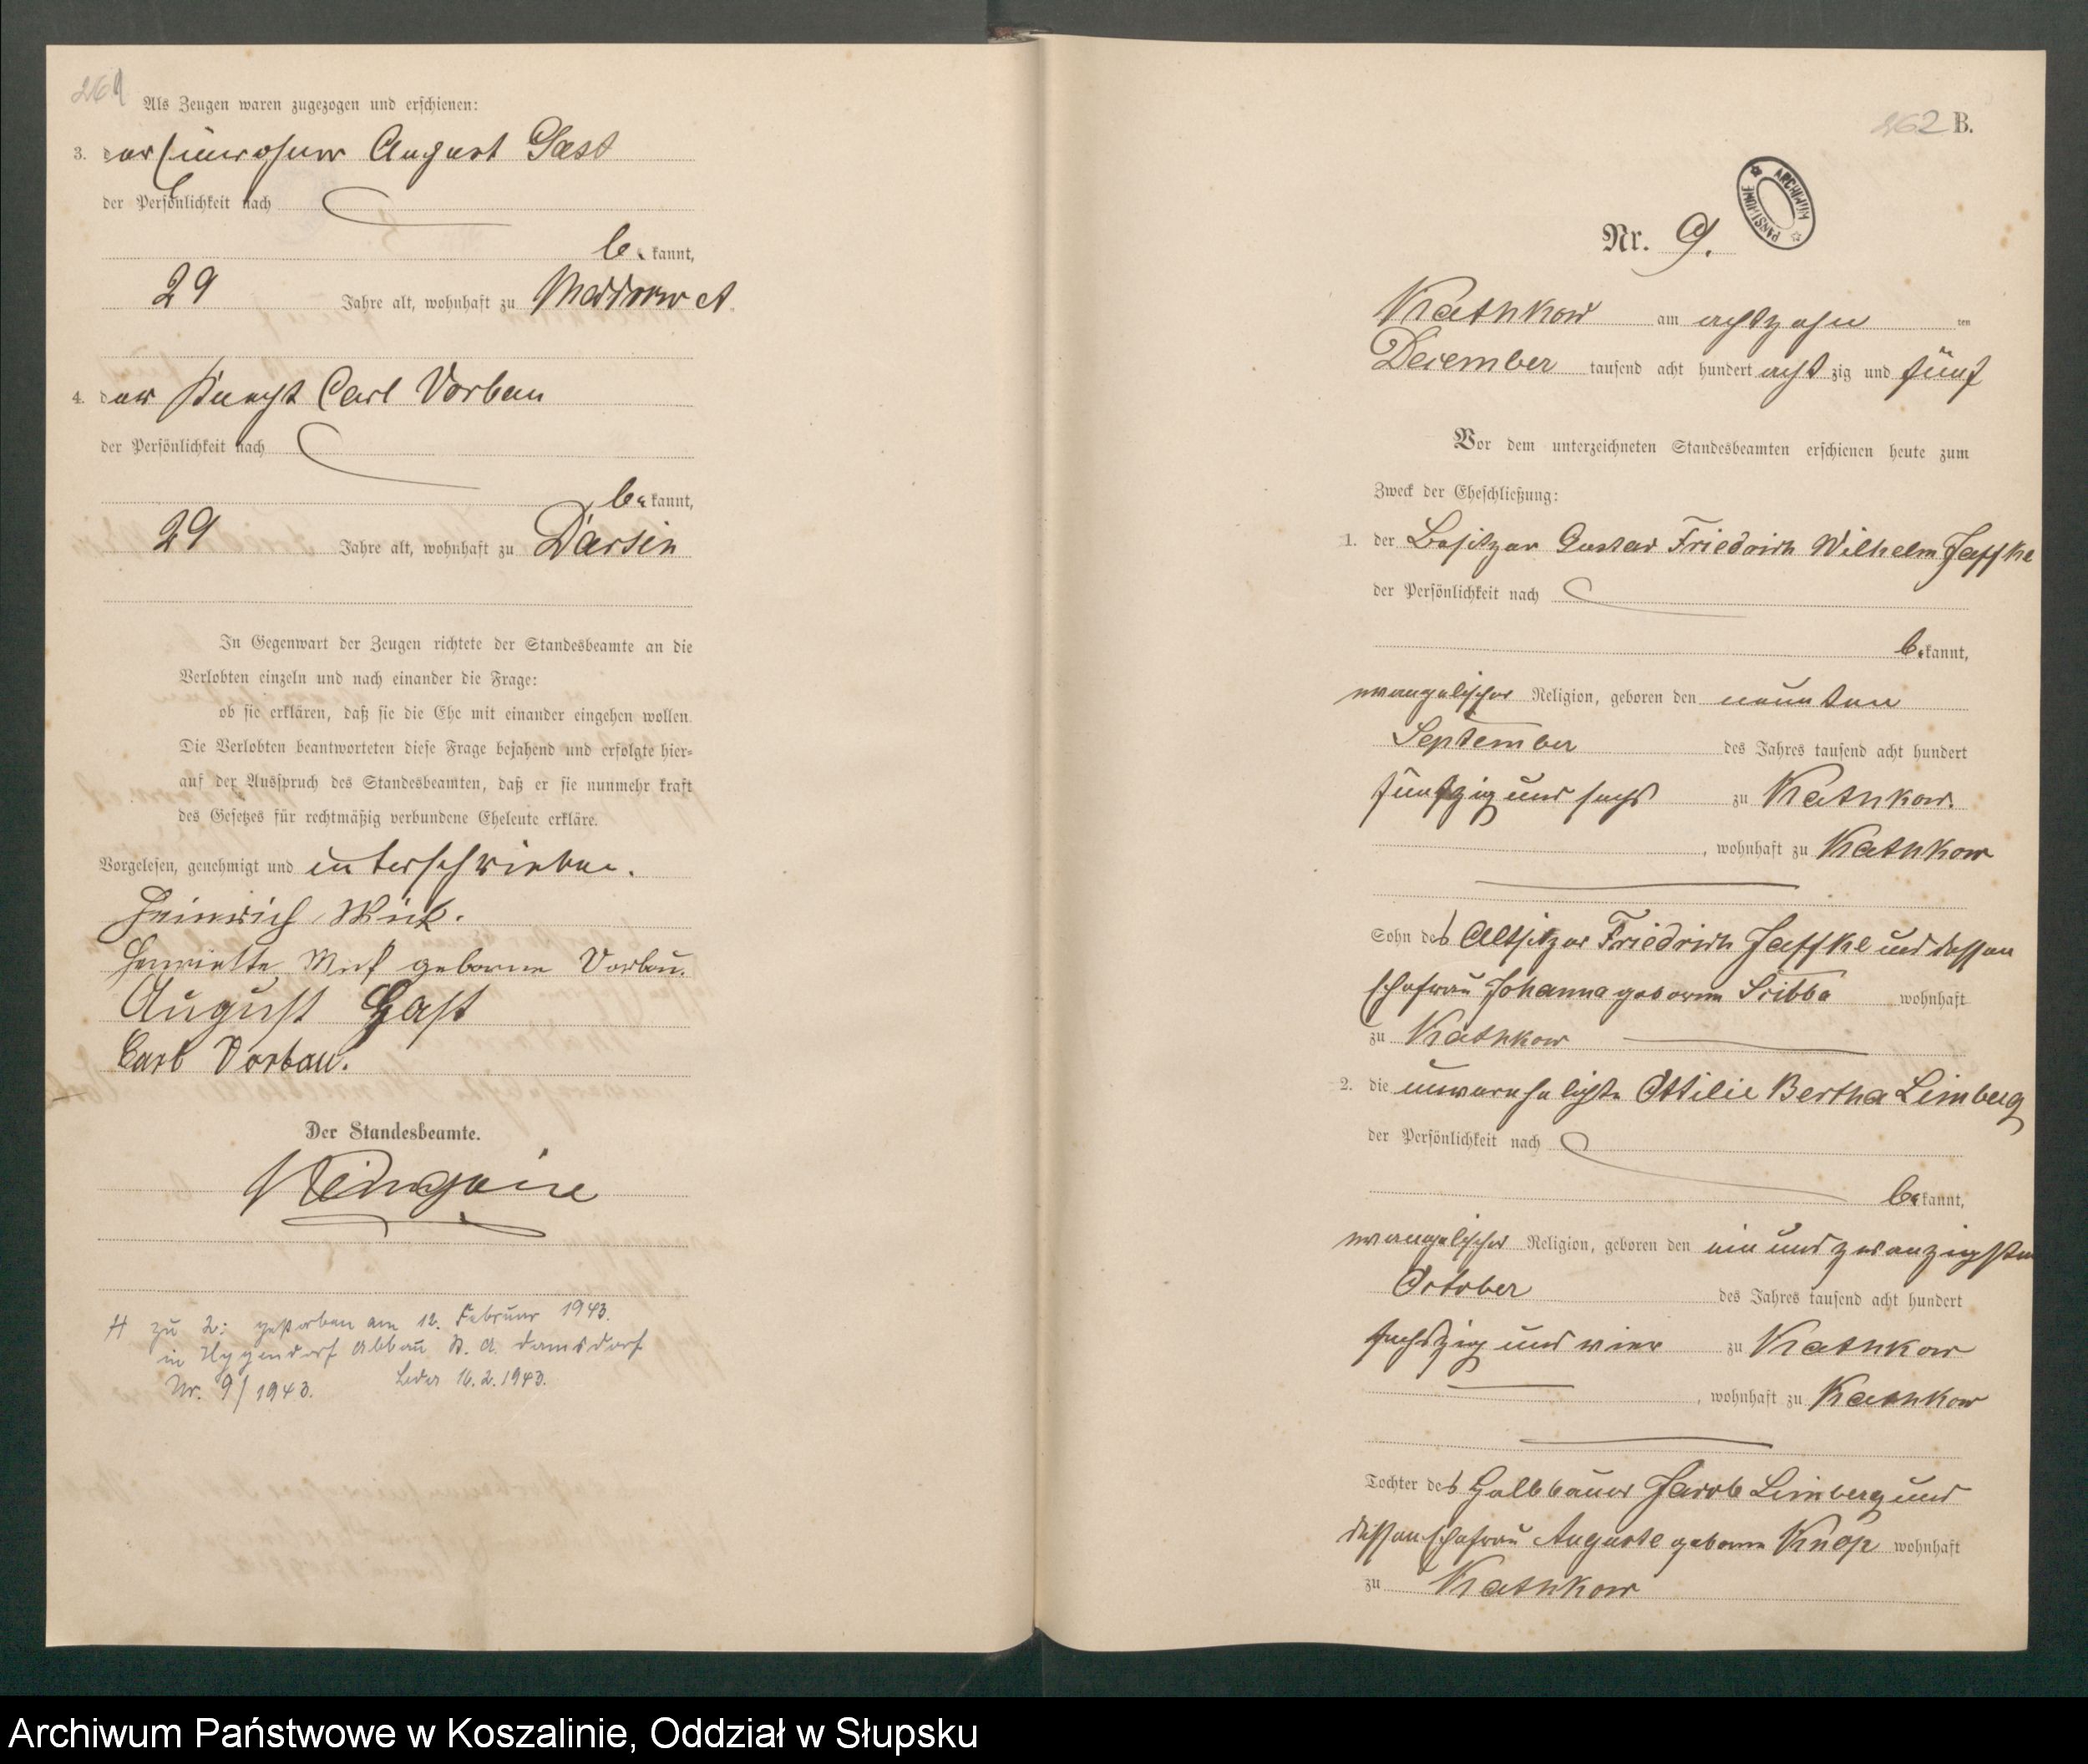 261
Als Zeugen waren zugezogen und erschienen:
3. der Einwohner August Gast
der Persönlichkeit nach
be kannt,
29 Jahre alt, wohnhaft zu A.
4. der Knecht Carl Vorbau
der Persönlichkeit nach
be kannt,
29 Jahre alt, wohnhaft zu Darsin
In Gegenwart der Zeugen richtete der Standesbeamte an die
Verlobten einzeln und nach einander die Frage:
ob sie erklären, daß sie die Ehe mit einander eingehen wollen.
Die Verlobten beantworteten diese Frage bejahend und erfolgte hier=
auf der Ausspruch des Standesbeamten, daß er sie nunmehr kraft
des Gesetzes für rechtmäßig verbundene Eheleute erkläre.
Vorgelesen, genehmigt und unterschrieben.
Heinrich
Henriette geborene Vorbau.
August Gast
Carl Vorbau.
Der Standesbeamte.
H zu 2: gestorben am 12. Februar 1943.
in Abbau St. A. Damsdorf
Nr. 9/1943. 16.2.1943.
262 B.
ARCHIWUM PAŃSTWOWE
Nr. 9.
Kathkow am achtzehn ten
December tausend acht hundert acht zig und fünf
Vor dem unterzeichneten Standesbeamten erschienen heute zum
Zweck der Eheschließung:
1. der Besitzer Gustav Friedrich Wilhelm Jaffke
der Persönlichkeit nach
be kannt,
evangelischer Religion, geboren den neunten
September des Jahres tausend acht hundert
fünfzig und sechs zu Kathkow.
, wohnhaft zu Kathkow
Sohn des Altsitzer Friedrich Jaffke und dessen
Ehefrau Johanna geborene Scibba wohnhaft
zu Kathkow
2. die unverehelichte Ottilie Bertha Limberg
der Persönlichkeit nach
be kannt,
evangelischer Religion, geboren den ein und zwanzigsten
October des Jahres tausend acht hundert
sechszig und vier zu Kathkow
, wohnhaft zu Kathkow
Tochter des Halbbauer Jacob Limberg und
dessen Ehefrau Auguste geborne Knop wohnhaft
zu Kathkow
Archiwum Państwowe w Koszalinie, Oddział w Słupsku